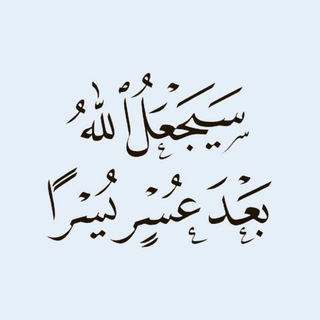 سَيَجْعَلُ ٱللهُ
بَعْدَ عُسْرٍ يُسْرًا